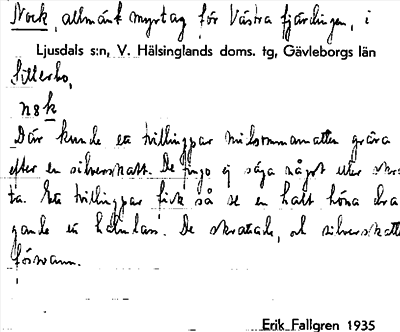 Nork, allmänt myrtag för Västra fjärdingen, i
Ljusdals s:n, V. Hälsinglands doms. tg, Gävleborgs län
Sillerbo,
nsk
Där kunde ett tvillingpar midsommarnatten gräva
efter en silverskatt. De fingo ej säga något eller skrat
ta. Ett tvillingpar fick så se en halt höna dra
gande ett hölass. De skrattade, och silverskatten
försvann.
Erik Fallgren 1935